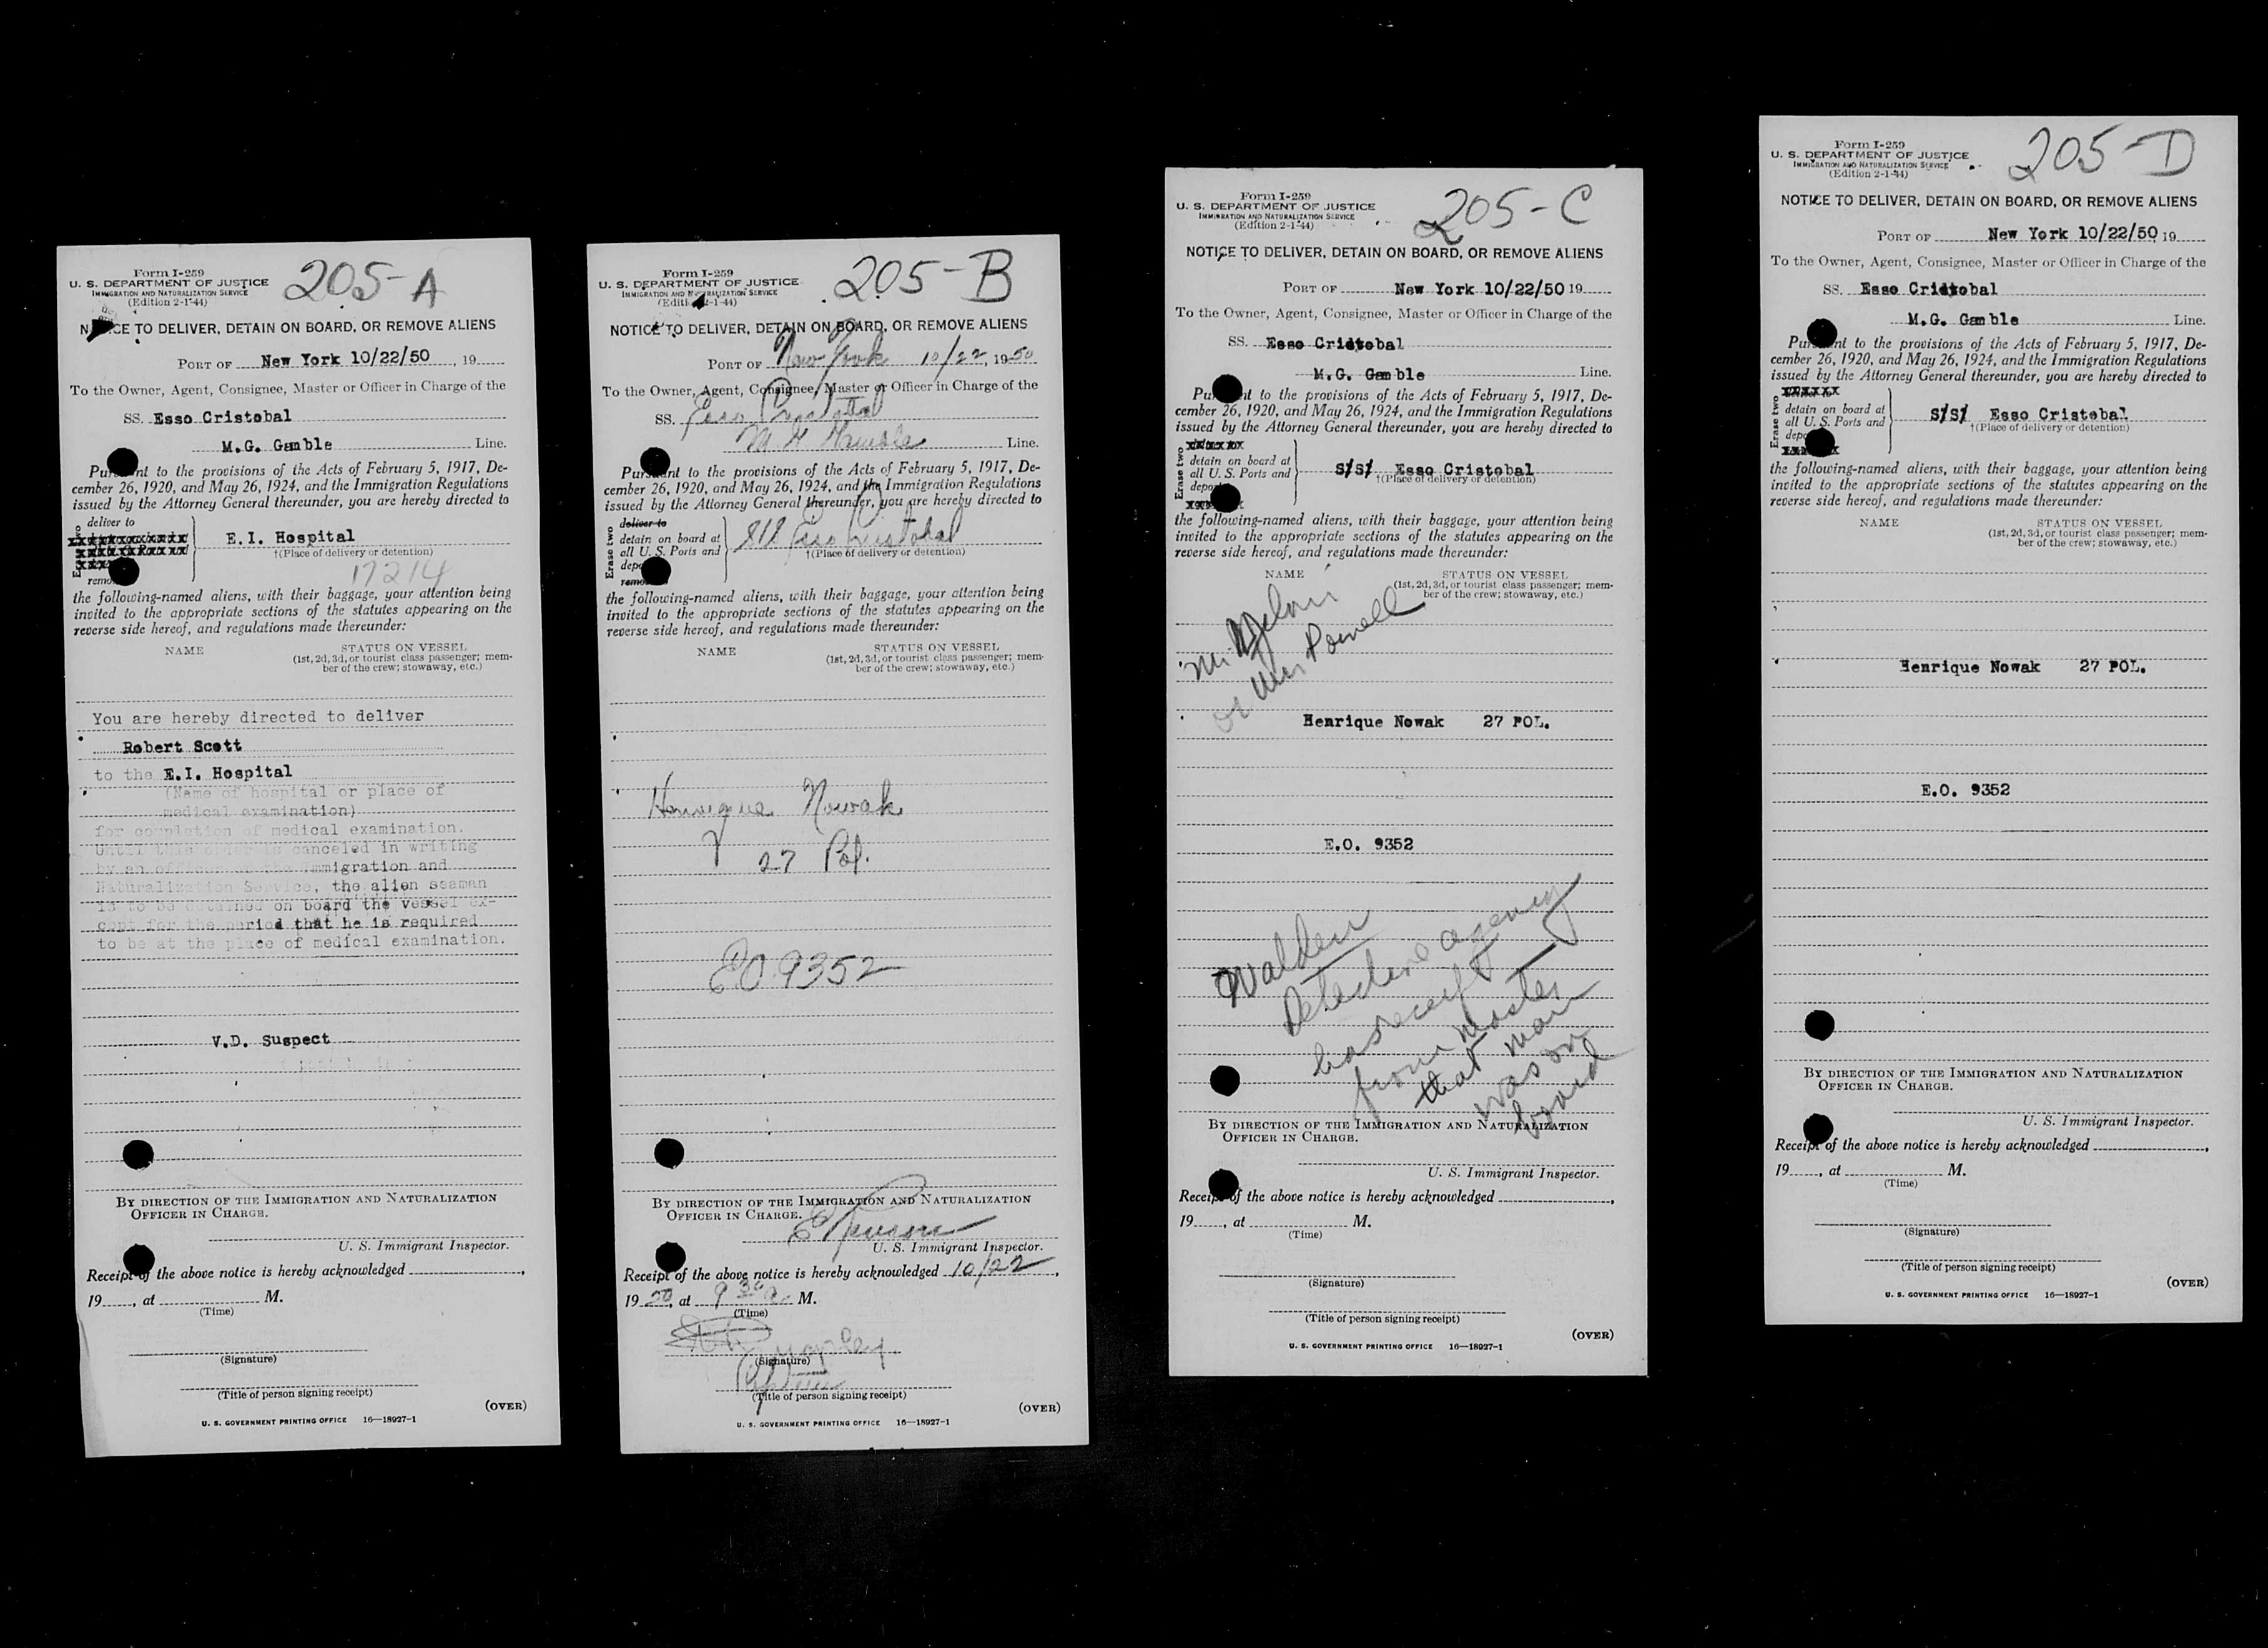 205-A
Form I-259
U. S. DEPARTMENT OF JUSTICE
IMMIGRATION AND NATURALIZATION SERVICE
(Edition 2-1-44)
NOTICE TO DELIVER, DETAIN ON BOARD, OR REMOVE ALIENS
PORT OF New York 10/22/50, 19
To the Owner, Agent, Consignee, Master or Officer in Charge of the
SS. Esso Cristobal
M.G. Gamble Line.
Pursuant to the provisions of the Acts of February 5, 1917, De-
cember 26, 1920, and May 26, 1924, and the Immigration Regulations
issued by the Attorney General thereunder, you are hereby directed to
deliver to
E.I. Hospital
†(Place of delivery or detention)
17214
the following-named aliens, with their baggage, your attention being
invited to the appropriate sections of the statutes appearing on the
reverse side hereof, and regulations made thereunder:
NAME STATUS ON VESSEL
(1st, 2d, 3d, or tourist class passenger; mem-
ber of the crew; stowaway, etc.)
You are hereby directed to deliver
Robert Scott
to the E.I. Hospital
(Name of hospital or place of
medical examination)
for completion of medical examination.
Until this order is canceled in writing
by an officer of the Immigration and
Naturalization Service, the alien seaman
is to be detained on board the vessel ex-
cept for the period that he is required
to be at the place of medical examination.
V.D. Suspect
BY DIRECTION OF THE IMMIGRATION AND NATURALIZATION
OFFICER IN CHARGE.
U. S. Immigrant Inspector.
Receipt of the above notice is hereby acknowledged ,
19 , at M.
(Time)
(Signature)
(Title of person signing receipt)
(OVER)
U. S. GOVERNMENT PRINTING OFFICE 16—18927-1
205-B
Form I-259
U. S. DEPARTMENT OF JUSTICE
IMMIGRATION AND NATURALIZATION SERVICE
(Edition 2-1-44)
NOTICE TO DELIVER, DETAIN ON BOARD, OR REMOVE ALIENS
PORT OF New York 10/22, 1950
To the Owner, Agent, Consignee, Master or Officer in Charge of the
SS. Esso Cristobal
M G Gamble Line.
Pursuant to the provisions of the Acts of February 5, 1917, De-
cember 26, 1920, and May 26, 1924, and the Immigration Regulations
issued by the Attorney General thereunder, you are hereby directed to
Erase two
deliver to
detain on board at
all U. S. Ports and
remove
S/S Esso Cristobal
†(Place of delivery or detention)
the following-named aliens, with their baggage, your attention being
invited to the appropriate sections of the statutes appearing on the
reverse side hereof, and regulations made thereunder:
NAME STATUS ON VESSEL
(1st, 2d, 3d, or tourist class passenger; mem-
ber of the crew; stowaway, etc.)
Henrique Nowak
27 Pol.
EO 9352
BY DIRECTION OF THE IMMIGRATION AND NATURALIZATION
OFFICER IN CHARGE.
U. S. Immigrant Inspector.
Receipt of the above notice is hereby acknowledged 10/22,
1950, at 9 30 a. M.
(Time)
(Signature)
(Title of person signing receipt)
(OVER)
U. S. GOVERNMENT PRINTING OFFICE 16—18927-1
205-C
Form I-259
U. S. DEPARTMENT OF JUSTICE
IMMIGRATION AND NATURALIZATION SERVICE
(Edition 2-1-44)
NOTICE TO DELIVER, DETAIN ON BOARD, OR REMOVE ALIENS
PORT OF New York 10/22/50 19
To the Owner, Agent, Consignee, Master or Officer in Charge of the
SS. Esso Cristobal
M.G. Gamble Line.
Pursuant to the provisions of the Acts of February 5, 1917, De-
cember 26, 1920, and May 26, 1924, and the Immigration Regulations
issued by the Attorney General thereunder, you are hereby directed to
Erase two
detain on board at
all U. S. Ports and
S/S/ Esso Cristobal
†(Place of delivery or detention)
the following-named aliens, with their baggage, your attention being
invited to the appropriate sections of the statutes appearing on the
reverse side hereof, and regulations made thereunder:
NAME STATUS ON VESSEL
(1st, 2d, 3d, or tourist class passenger; mem-
ber of the crew; stowaway, etc.)
or Powell
Henrique Nowak 27 POL.
E.O. 9352
Walden
Detective agency
has receipt
from master
that man
was on
board
BY DIRECTION OF THE IMMIGRATION AND NATURALIZATION
OFFICER IN CHARGE.
U. S. Immigrant Inspector.
Receipt of the above notice is hereby acknowledged ,
19 , at M.
(Time)
(Signature)
(Title of person signing receipt)
(OVER)
U. S. GOVERNMENT PRINTING OFFICE 16—18927-1
205-D
Form I-259
U. S. DEPARTMENT OF JUSTICE
IMMIGRATION AND NATURALIZATION SERVICE
(Edition 2-1-44)
NOTICE TO DELIVER, DETAIN ON BOARD, OR REMOVE ALIENS
PORT OF New York 10/22/50 19
To the Owner, Agent, Consignee, Master or Officer in Charge of the
SS. Esso Cristobal
M.G. Gamble Line.
Pursuant to the provisions of the Acts of February 5, 1917, De-
cember 26, 1920, and May 26, 1924, and the Immigration Regulations
issued by the Attorney General thereunder, you are hereby directed to
Erase two
detain on board at
all U. S. Ports and
S/S/ Esso Cristobal
†(Place of delivery or detention)
the following-named aliens, with their baggage, your attention being
invited to the appropriate sections of the statutes appearing on the
reverse side hereof, and regulations made thereunder:
NAME STATUS ON VESSEL
(1st, 2d, 3d, or tourist class passenger; mem-
ber of the crew; stowaway, etc.)
Henrique Nowak 27 POL.
E.O. 9352
BY DIRECTION OF THE IMMIGRATION AND NATURALIZATION
OFFICER IN CHARGE.
U. S. Immigrant Inspector.
Receipt of the above notice is hereby acknowledged ,
19 , at M.
(Time)
(Signature)
(Title of person signing receipt)
(OVER)
U. S. GOVERNMENT PRINTING OFFICE 16—18927-1